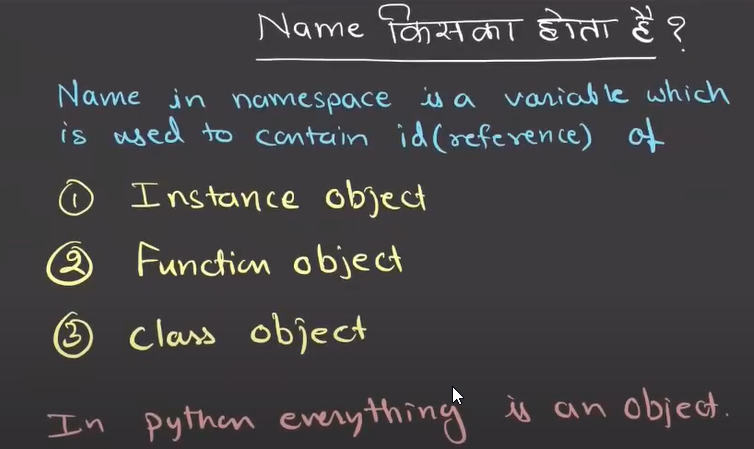 Name किसका होता है ?
Name in namespace is a variable which
is used to contain id(reference) of
① Instance object
② Function object
③ class object
In python everything is an object.